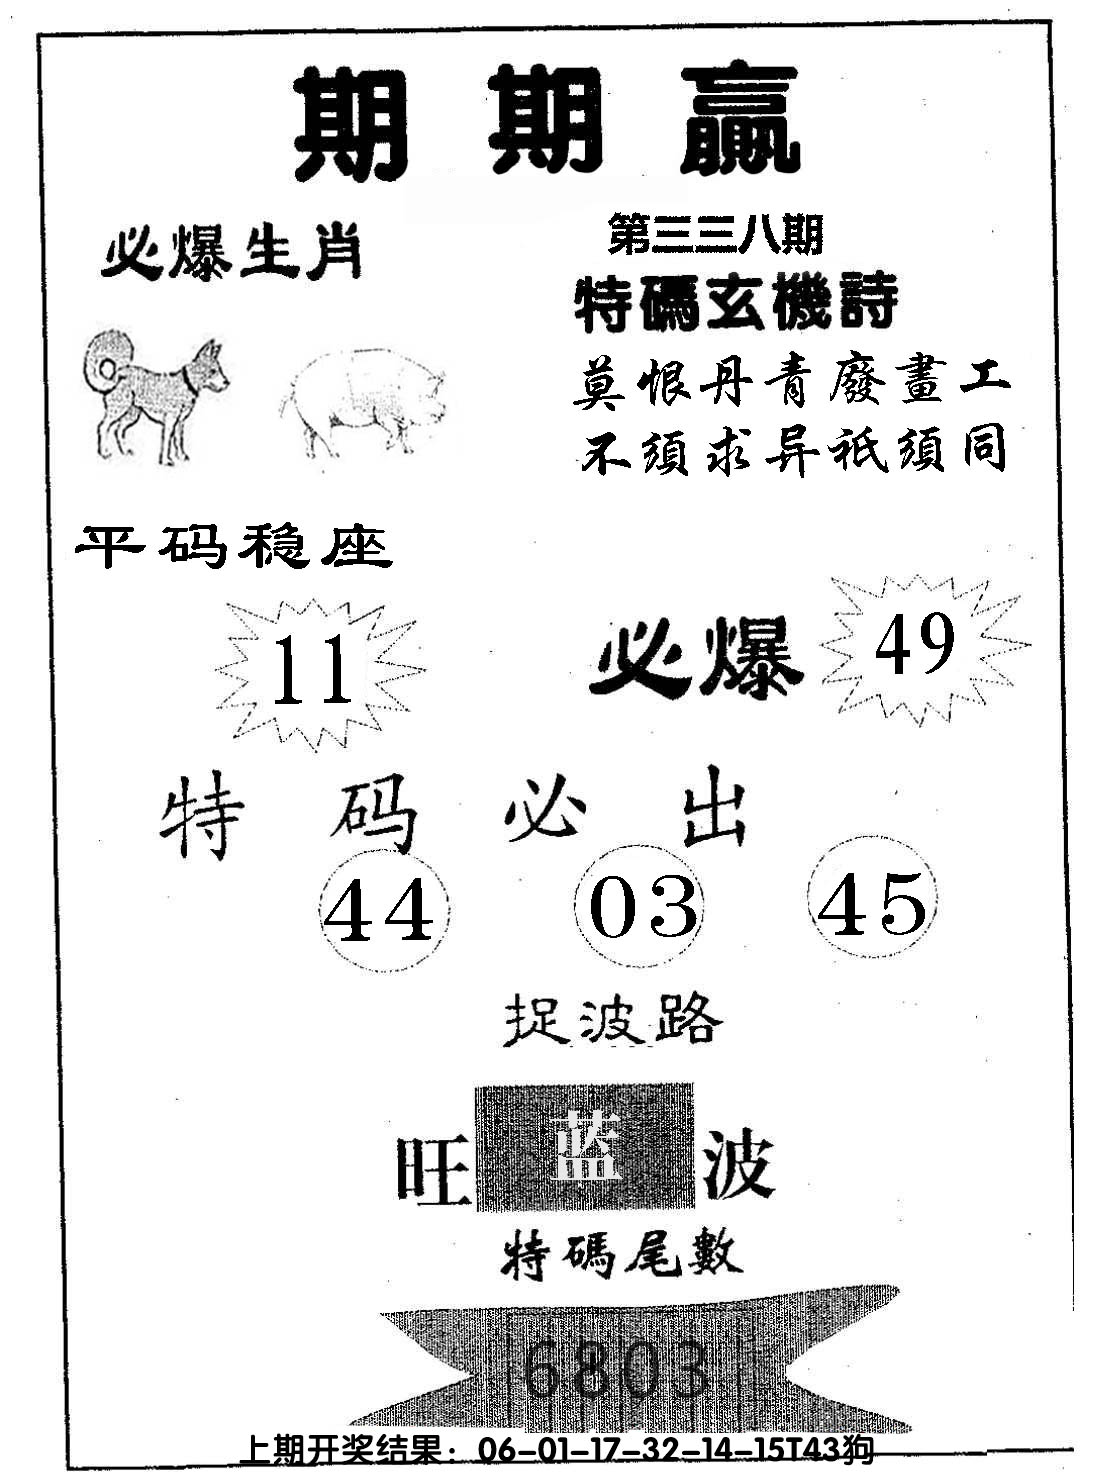 期期贏
必爆生肖
第三三八期
特碼玄機詩
莫恨丹青廢畫工
不須求异祇須同
平码稳座
11
必爆
49
特码必出
44 03 45
捉波路
旺蓝波
特碼尾數
6803
上期开奖结果：06-01-17-32-14-15T43狗